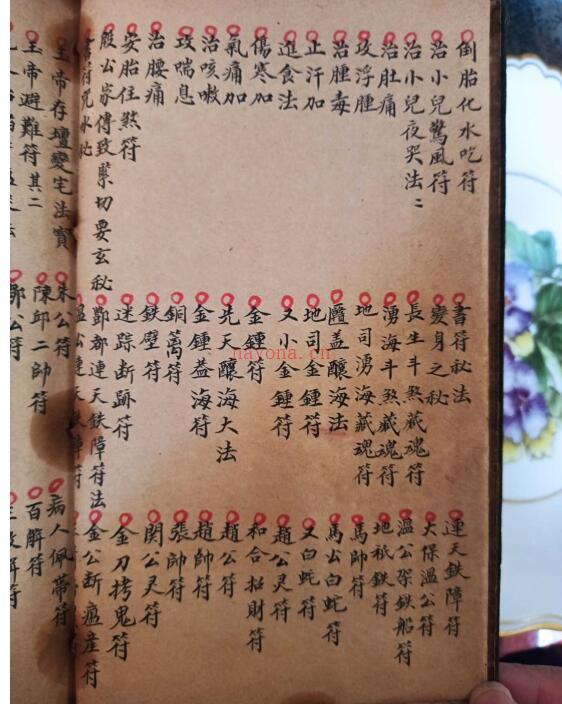 倒胎化水吃符
治小兒驚風符
治小兒夜哭法二
治肚痛
攻浮腫
治腫毒
止汗加
進食法
傷寒加
氣痛加
治咳嗽
攻喘息
治腰痛
安胎住煞符
殷公家傳致緊切要玄秘
書符咒水秘
玉帝存壇變宅法寶
玉帝避難符其二
書符秘法
變身之秘
長生斗煞藏魂符
湧海斗煞藏魂符
地司湧海藏魂符
蓋釀海法
地司金鍾符
又小金鍾符
金鍾符
先天釀海大法
金鍾蓋海符
銅萬符
鉄壁符
迷踪断跡符
酆都連天鉄障符法
溫公連天鉄障符
朱公符
陳邱二帥符
鄧公符
連天鉄障符
大保溫公符
溫公架鉄船符
地祇鉄符
馬帥符
馬公白蛇符
又白蛇符
趙公灵符
和合招財符
趙公符
趙帥符
張帥符
関公灵符
金刀拷鬼符
金公断瘟産符
病人佩帶符
百解符
三教符
nayona.cn